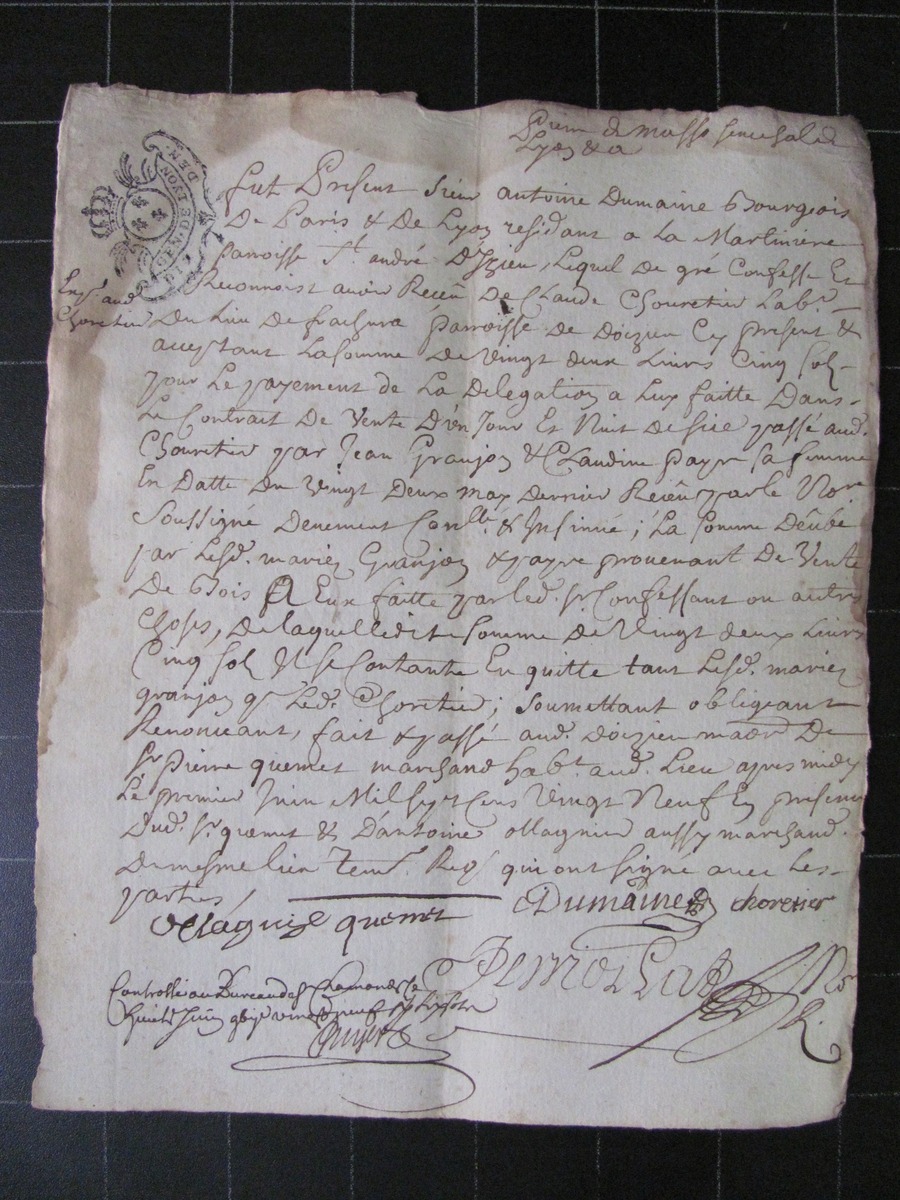 Pierre de masso senechal de
Lyon & a
GEN. DE LYON
DEN.
fut Présent Sieur antoine Dumaine Bourgeois
De Paris & De Lyon residant a La Martiniere
parroisse St. andré D'Izieu, Lequel De gré Confesse Et
Reconnoist avoir Receu De Claude Choretier Labr.
Engt. aud.
Choretier
Du Lieu De frachura parroisse De Doizieu Cy present &
acceptant La somme De vingt deux Livres Cinq sols
pour Le payement de La Delegation a Luy faitte Dans
Le Contrait De Vente D'un Jour Et Nuit De sie passé aud.
Choretier par Jean Granjon & Claudine payre sa femme
En Datte Du Vingt Deux may Dernier Receu par le Nore
Soussigné Deuement Conllé & Insinué; La somme Deube
par Lesd. mariez Granjon & payre provenant De Vente
De Bois A Eux faitte par led. sr. Confessant ou autres
choses, De laquelle ditte somme De Vingt deux Livres
Cinq sols Il se Contante En quitte tant Lesd. mariez
granjon q Led. Choretier; soumettant obligeant
Renonceant, fait & passé aud. Doizieu maon De
sr. pierre quemet marchand habt. aud. Lieu apres midy
Le premier Juin Mil sept Cens Vingt Neuf En presence
Dud. sr. quemet & D'antoine ollagnier aussy marchand
Du mesme lieu Temo. Req qui ont signé avec Les
parties
Dumaine choretier
ollagnier quemet
Controllé au Bureau de St Chamond le
Juin vingt neuf